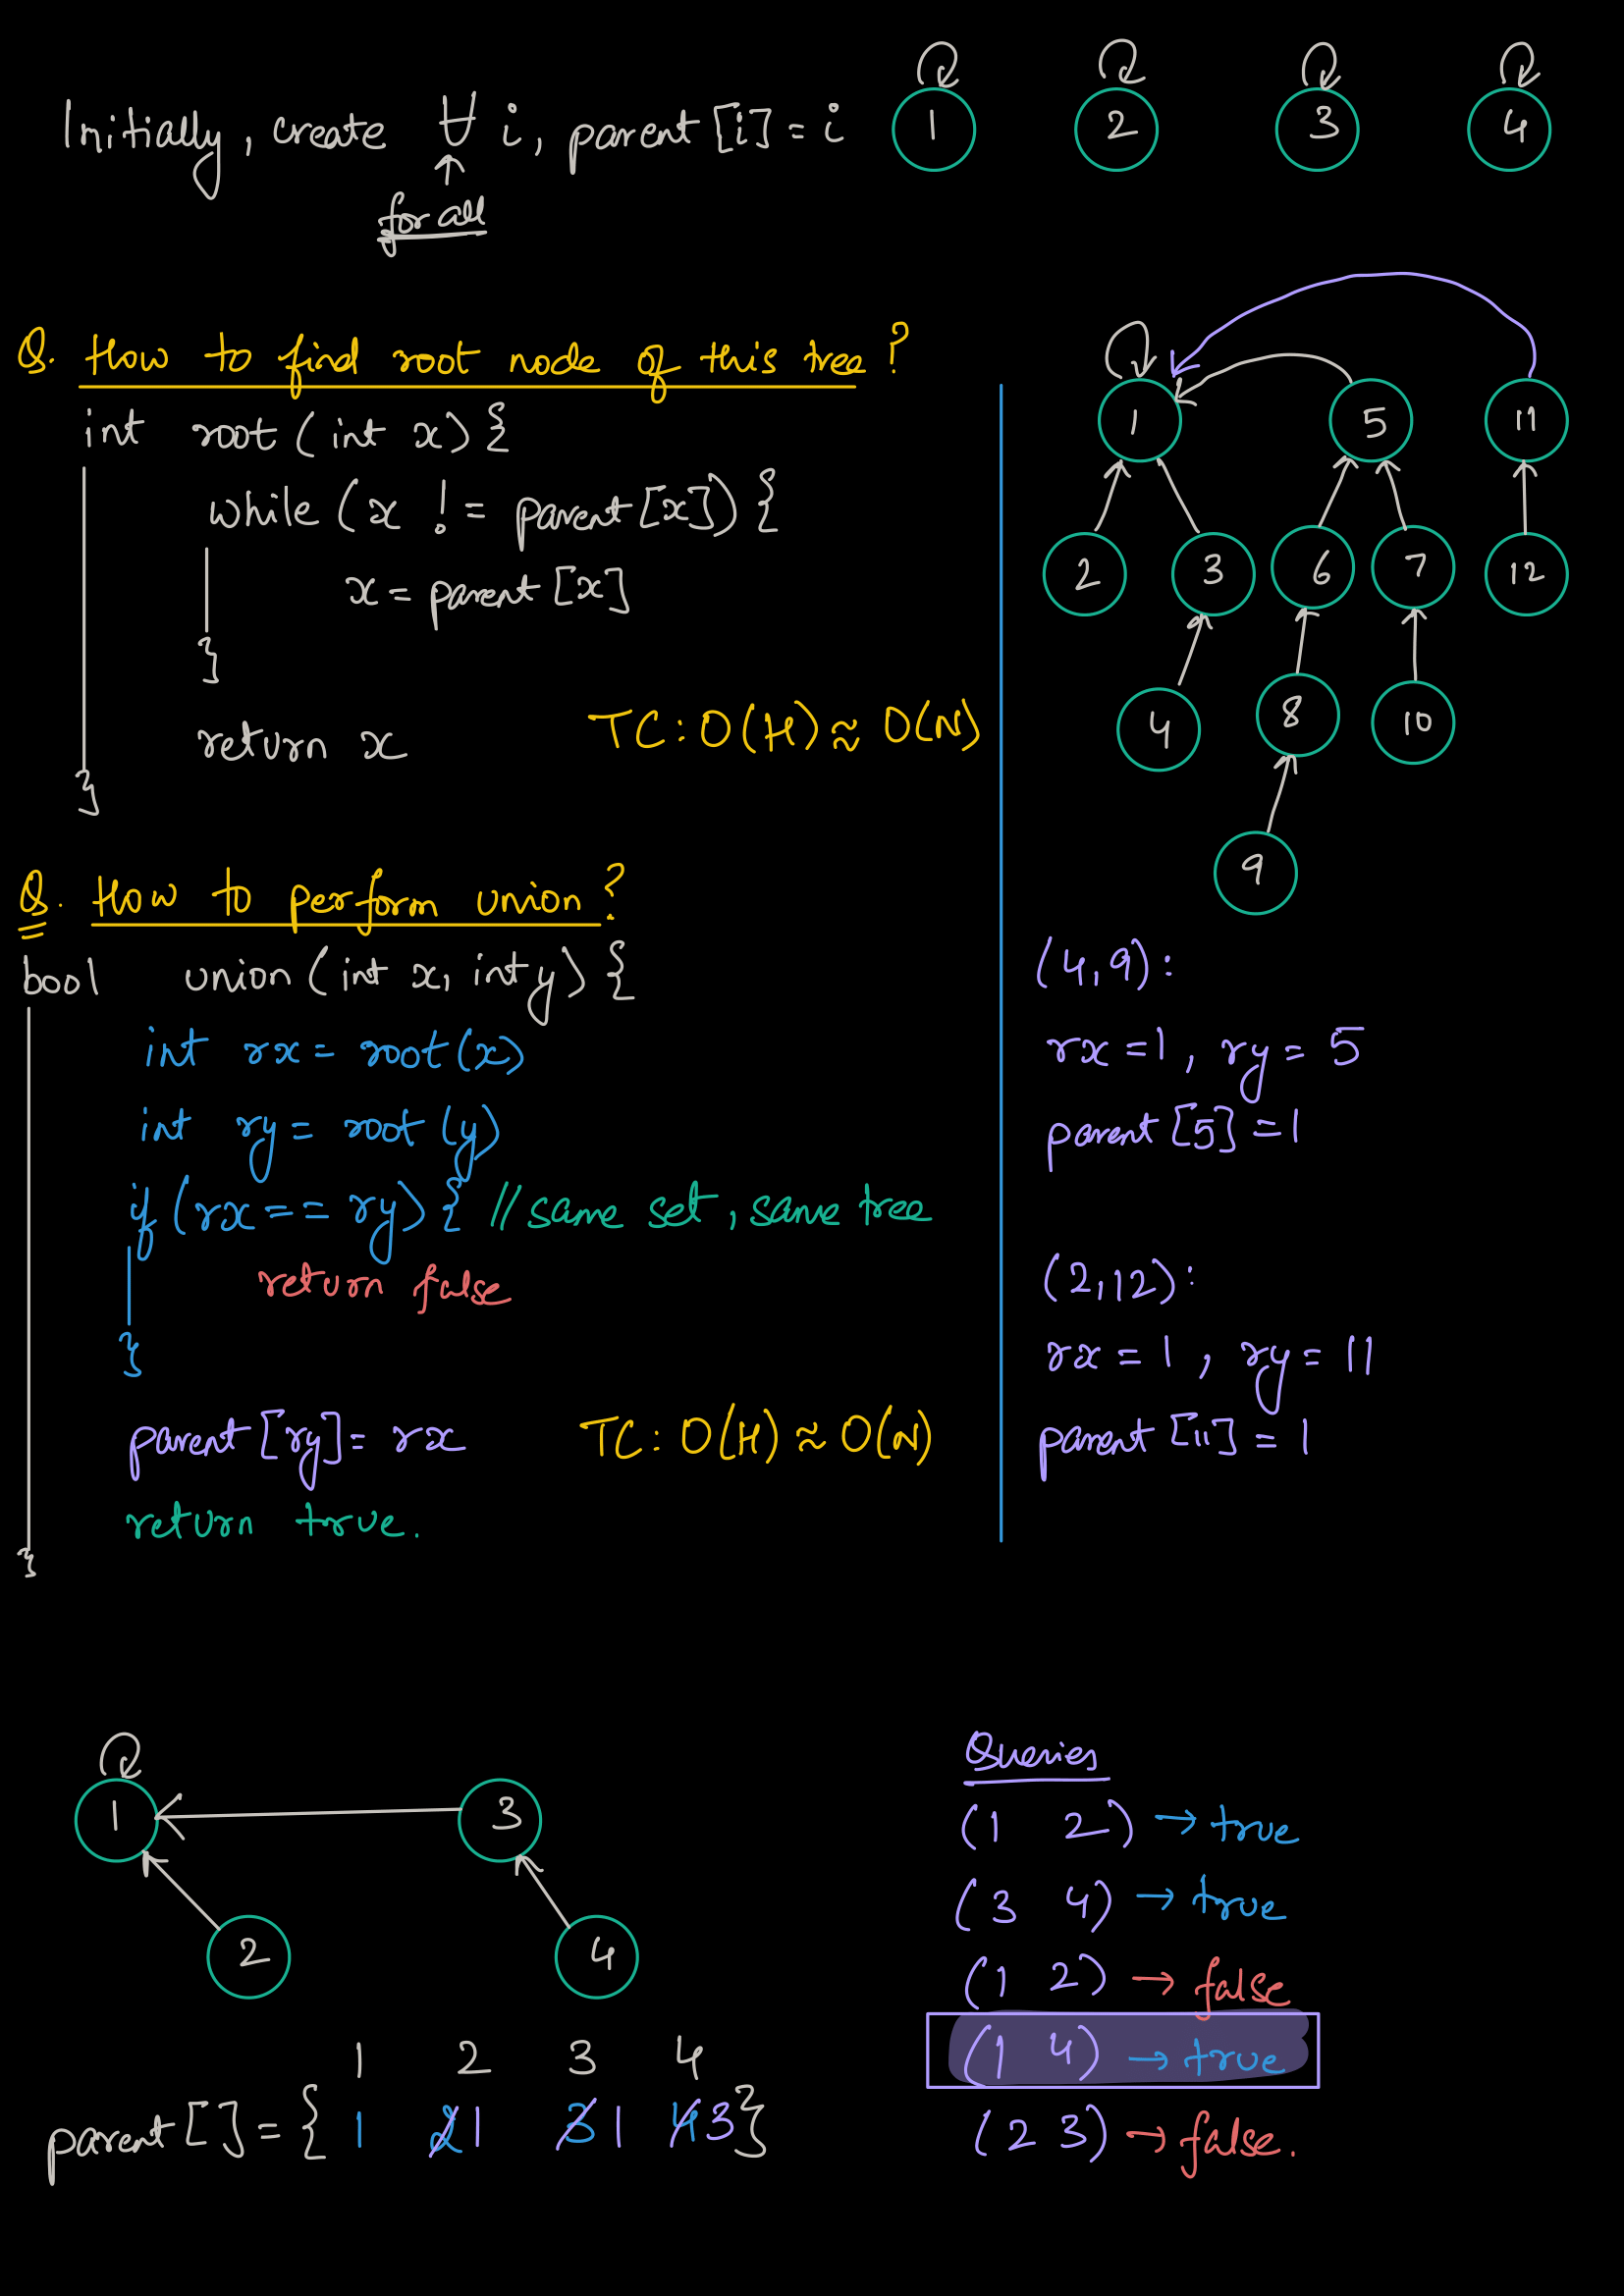 Initially, create ∀ i, parent[i] = i
for all
1 2 3 4
Q. How to find root node of this tree?
int root(int x){
while (x != parent[x]){
x = parent[x]
}
return x
TC: O(H) ≈ O(N)
}
1 5 11
2 3 6 7 12
4 8 10
9
Q. How to perform union?
bool union(int x, int y){
int rx = root(x)
int ry = root(y)
if (rx == ry){ // same set, same tree
return false
}
parent[ry] = rx
TC: O(H) ≈ O(N)
return true.
}
(4,9):
rx = 1, ry = 5
parent[5] = 1
(2,12):
rx = 1, ry = 11
parent[11] = 1
1 3
2 4
1 2 3 4
parent[] = { 1 2 1 3 1 4 3 }
Queries
(1 2) → true
(3 4) → true
(1 2) → false
(1 4) → true
(2 3) → false.